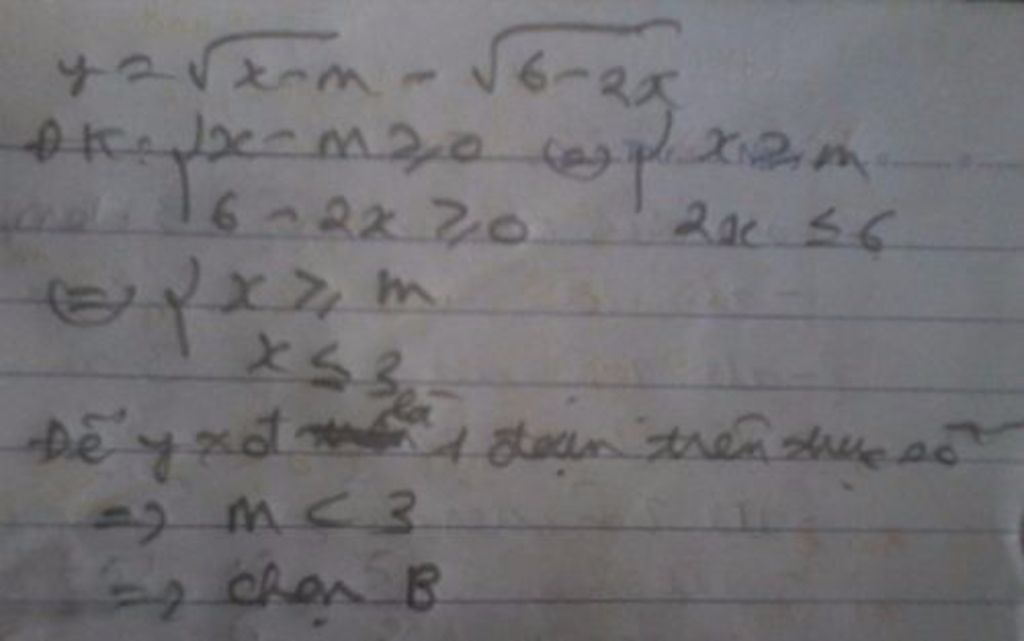 y = √x-m - √6-2x
ĐK: { x - m ≥ 0 ⇔ { x ≥ m
6 - 2x ≥ 0 2x ≤ 6
⇔ { x ≥ m
x ≤ 3
Để y xđ là 1 đoạn trên trục số
=> m < 3
=> chọn B